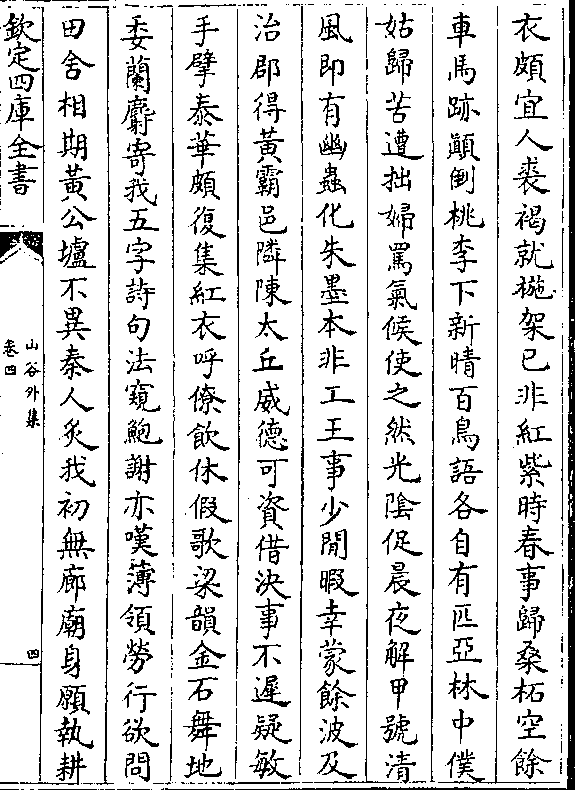 衣頗宜人裘褐就椸架已非紅紫時春事歸桑柘空餘
車馬跡顛倒桃李下新晴百鳥語各自有匹亞林中僕
姑歸苦遭拙婦罵氣候使之然光陰促晨夜解甲號清
風即有幽蟲化朱墨本非工王事少閒暇幸蒙餘波及
治郡得黃霸邑隣陳太丘威德可資借決事不遲疑敏
手擘泰華頗復集紅衣呼僚飲休假歌梁韻金石舞地
委蘭麝寄我五字詩句法窺鮑謝亦嘆簿領勞行欲問
田舍相期黃公壚不異秦人炙我初無廊廟身願執耕
欽定四庫全書
山谷外集
卷四
四